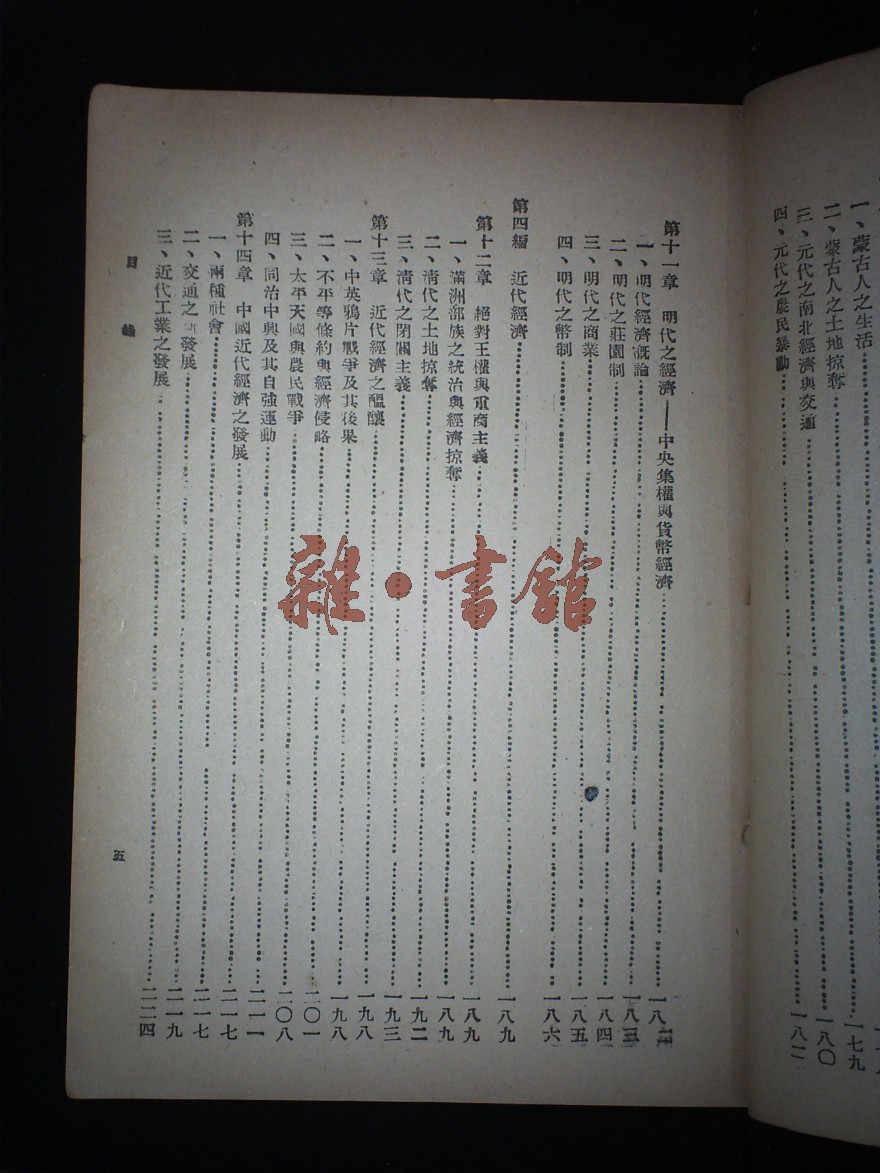 一、蒙古人之生活……
二、蒙古人之土地掠奪……一七九
三、元代之南北經濟與交通……一八〇
四、元代之農民暴動……一八二
第十一章　明代之經濟——中央集權與貨幣經濟……一八
一、明代經濟概論……一八三
二、明代之莊園制……一八四
三、明代之商業……一八五
四、明代之幣制……一八六
第四編　近代經濟……一八九
第十二章　絕對王權與重商主義……一八九
一、滿洲部族之統治與經濟掠奪……一八九
二、清代之土地掠奪……一九二
三、清代之閉關主義……一九三
第十三章　近代經濟之醞釀……一九八
一、中英鴉片戰爭及其後果……一九八
二、不平等條約與經濟侵略……二〇一
三、太平天國與農民戰爭……二〇八
四、同治中興及其自強運動……二一一
第十四章　中國近代經濟之發展……二一七
一、兩種社會……二一七
二、交通之新發展……二一九
三、近代工業之發展……二二四
目錄
五
雜·書館